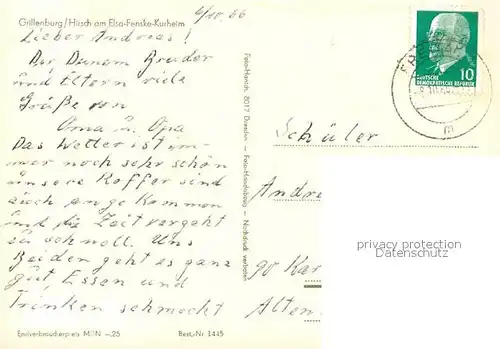 Grillenburg/Hirsch am Elsa-Fenske-Kurheim
6/10. 66
Lieber Andreas!
Dir Deinem Bruder
und Eltern viele
Grüße von
Oma u. Opa
Das Wetter ist im-
mer noch sehr schön
unsere Koffer sind
auch angekommen
und die Zeit vergeht
zu schnell. Uns
Beiden geht es ganz
gut Essen und
Trinken schmeckt
Endverbraucherpreis MDN -,25
Best.-Nr. 1445
Foto-Handrick, 8017 Dresden — Nachdruck verboten
DEUTSCHE
DEMOKRATISCHE REPUBLIK
10
Schüler
Andre
90 Kar
Alten
privacy protection
Datenschutz